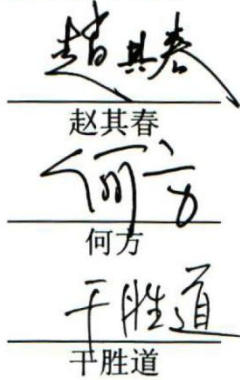 趙其春
赵其春
何方
何方
干胜道
干胜道